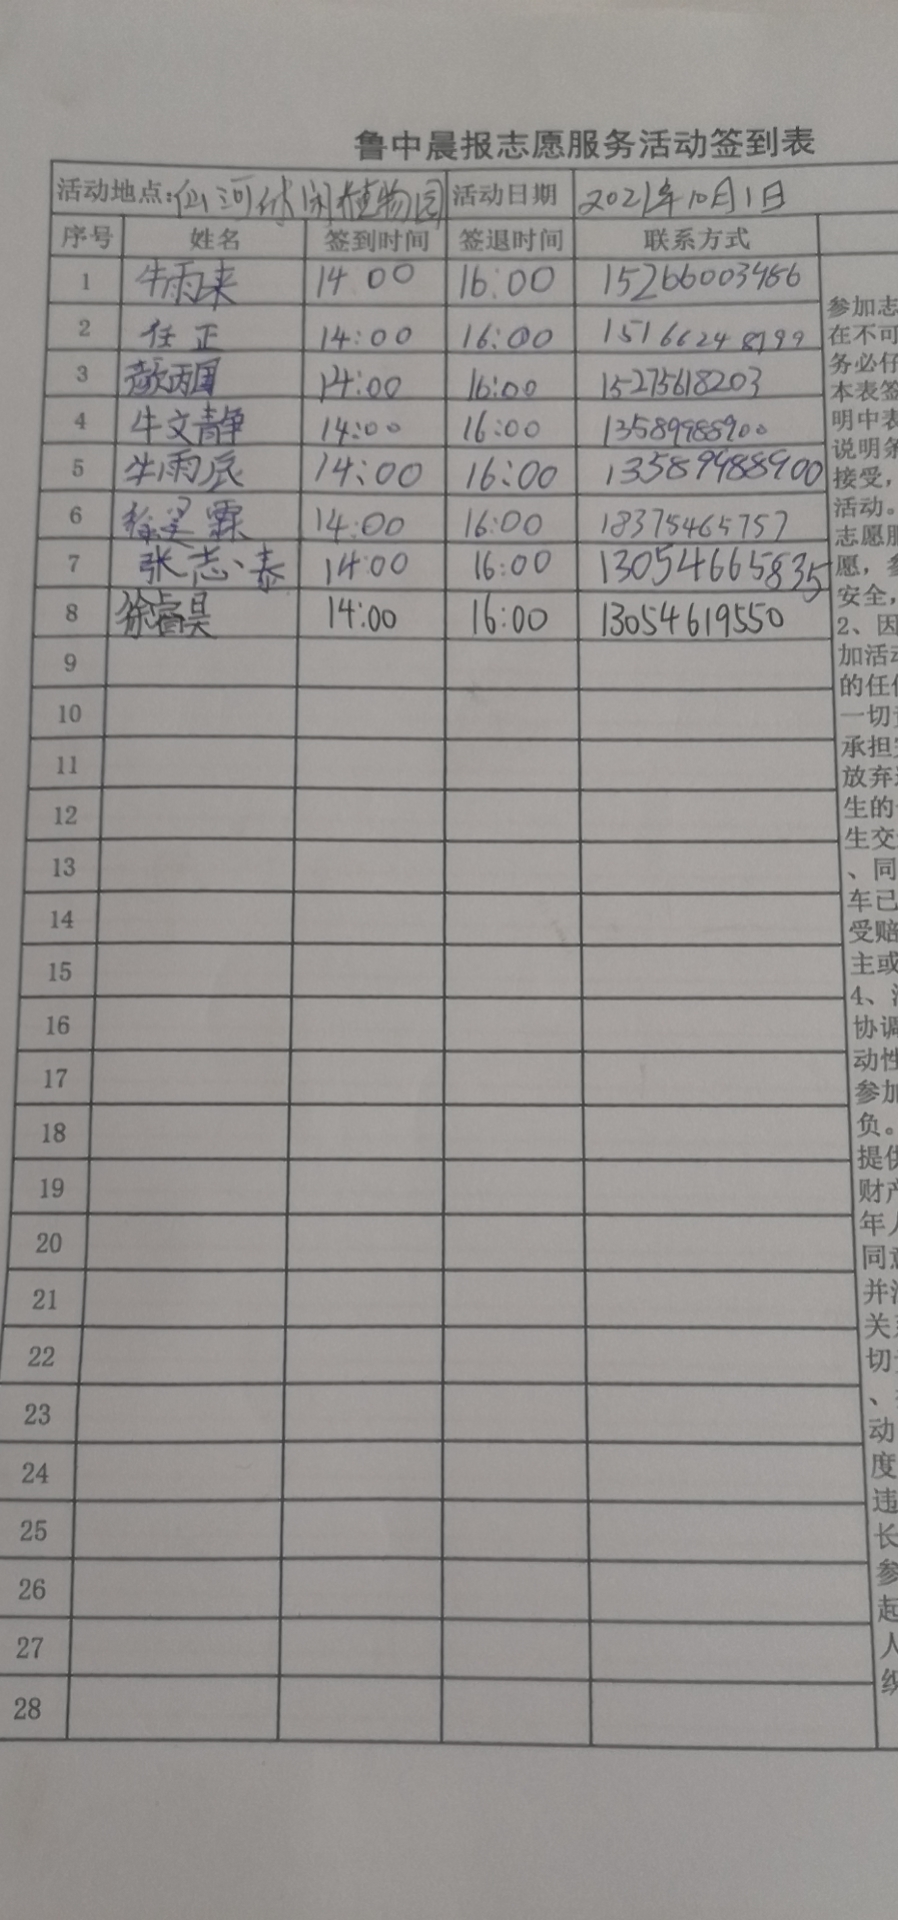 鲁中晨报志愿服务活动签到表
活动地点:仙河休闲植物园 活动日期 2021年10月1日
序号 姓名 签到时间 签退时间 联系方式
1 牛雨来 14:00 16:00 15266003486
2 任正 14:00 16:00 15166248799
3 14:00 16:00 15275618203
4 牛文静 14:00 16:00 13589988900
5 牛雨辰 14:00 16:00 13589988900
6 徐昊霖 14:00 16:00 18375465757
7 张志泰 14:00 16:00 13054665835
8 徐睿昊 14:00 16:00 13054619550
9
10
11
12
13
14
15
16
17
18
19
20
21
22
23
24
25
26
27
28
参加志
在不可
务必仔
本表签
明中表
说明条
接受,
活动。
志愿服
愿,参
安全,
2、因
加活动
的任何
一切责
承担
放弃
生的
生交
、同
车已
受赔
主或
4、
协调
动性
参加
负。
提供
财产
年人
同意
并
关系
切
、
动
度
违
长
参
起
人
织